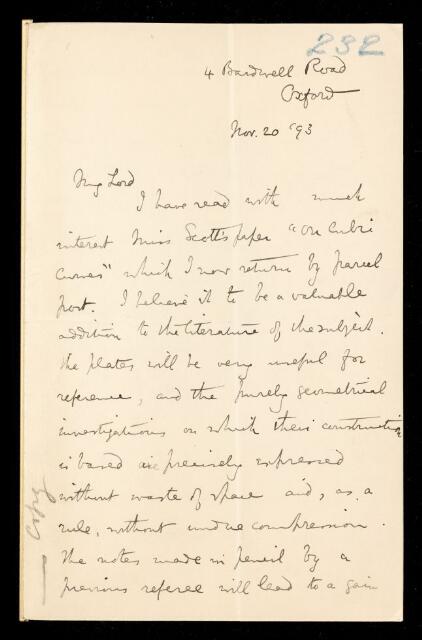 232
4 Bardwell Road
Oxford
Nov. 20 '93
My Lord
I have read with much
interest Miss Scott's paper "on Cubic
Curves" which I now return by parcel
post. I believe it to be a valuable
addition to the literature of the subject.
The plates will be very useful for
reference, and the purely geometrical
investigations on which their construction
is based are precisely expressed
without waste of space and, as a
rule, without undue compression.
The notes made in pencil by a
previous referee will lead to a gain
Copy